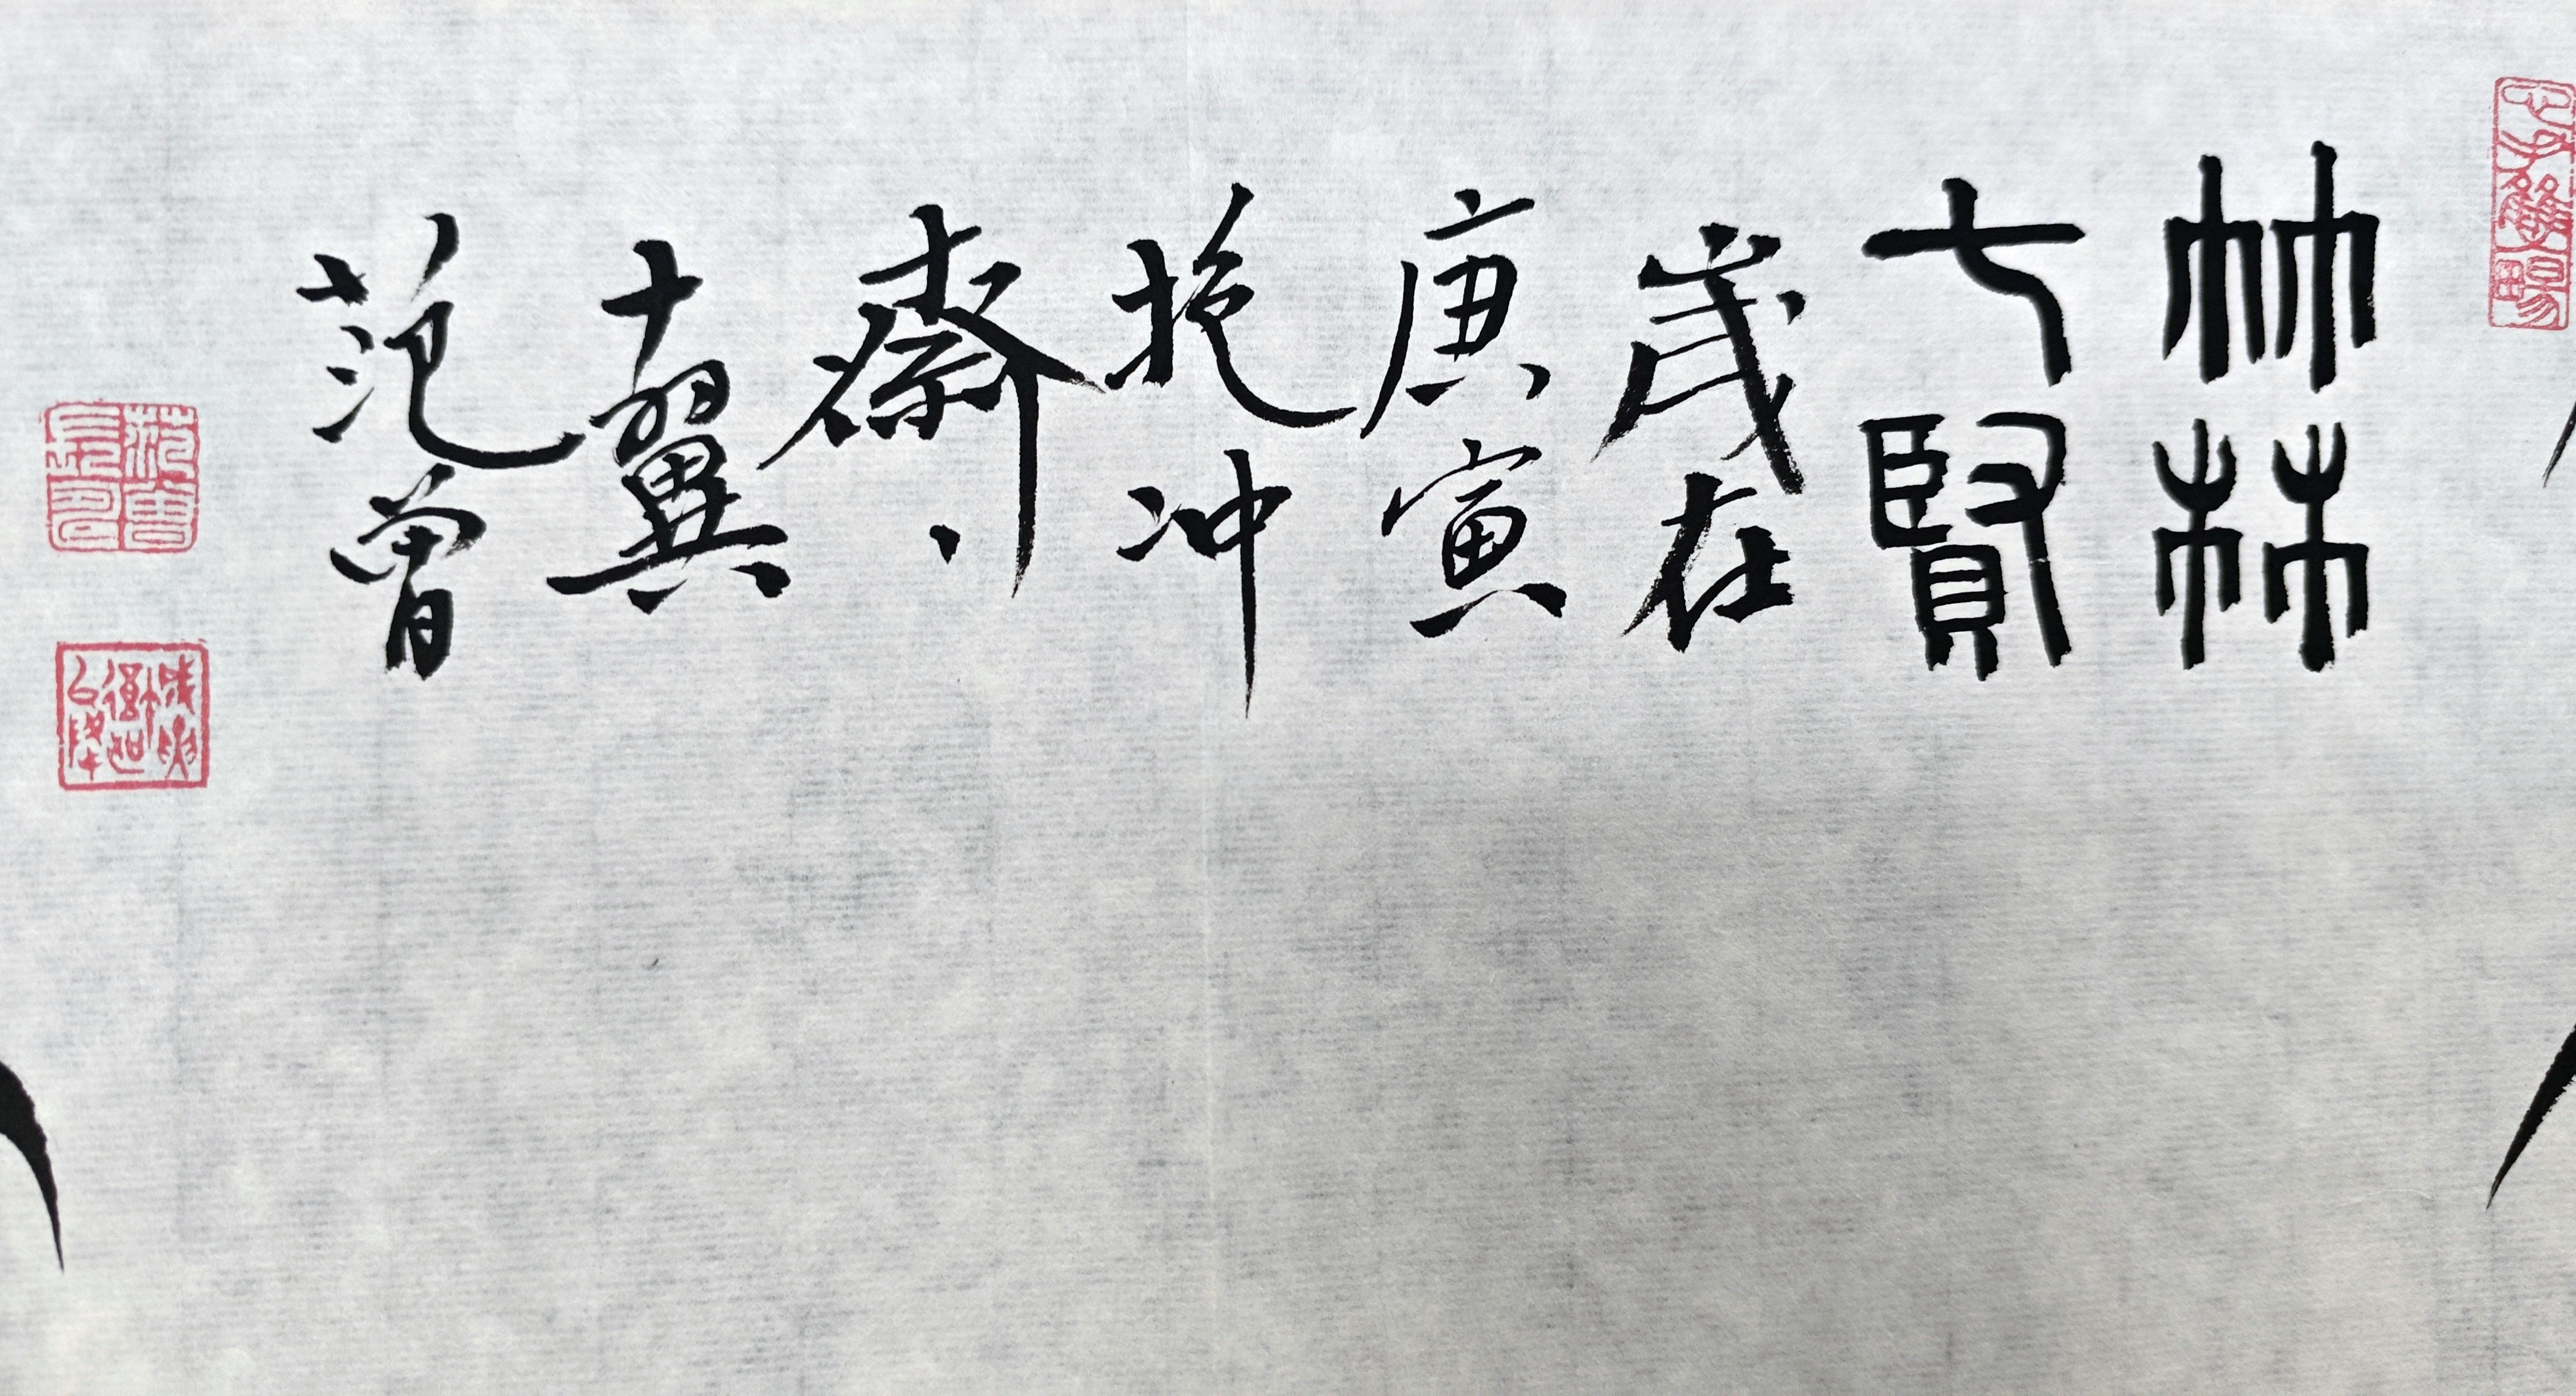 竹林
七賢
歲在
庚寅
抱冲
齋、
十翼
范曾